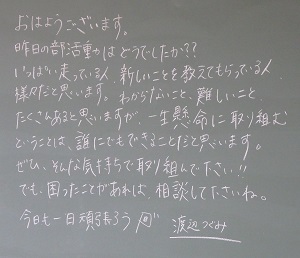 おはようございます。
昨日の部活動はどうでしたか??
いっぱい走っている人、新しいことを教えてもらっている人
様々だと思います。わからないこと、難しいこと、
たくさんあると思いますが、一生懸命に取り組む
ということは、誰にでもできることだと思います。
ぜひ、そんな気持ちで取り組んで下さい!!
でも、困ったことがあれば、相談して下さいね。
今日も一日頑張ろう
渡辺つぐみ